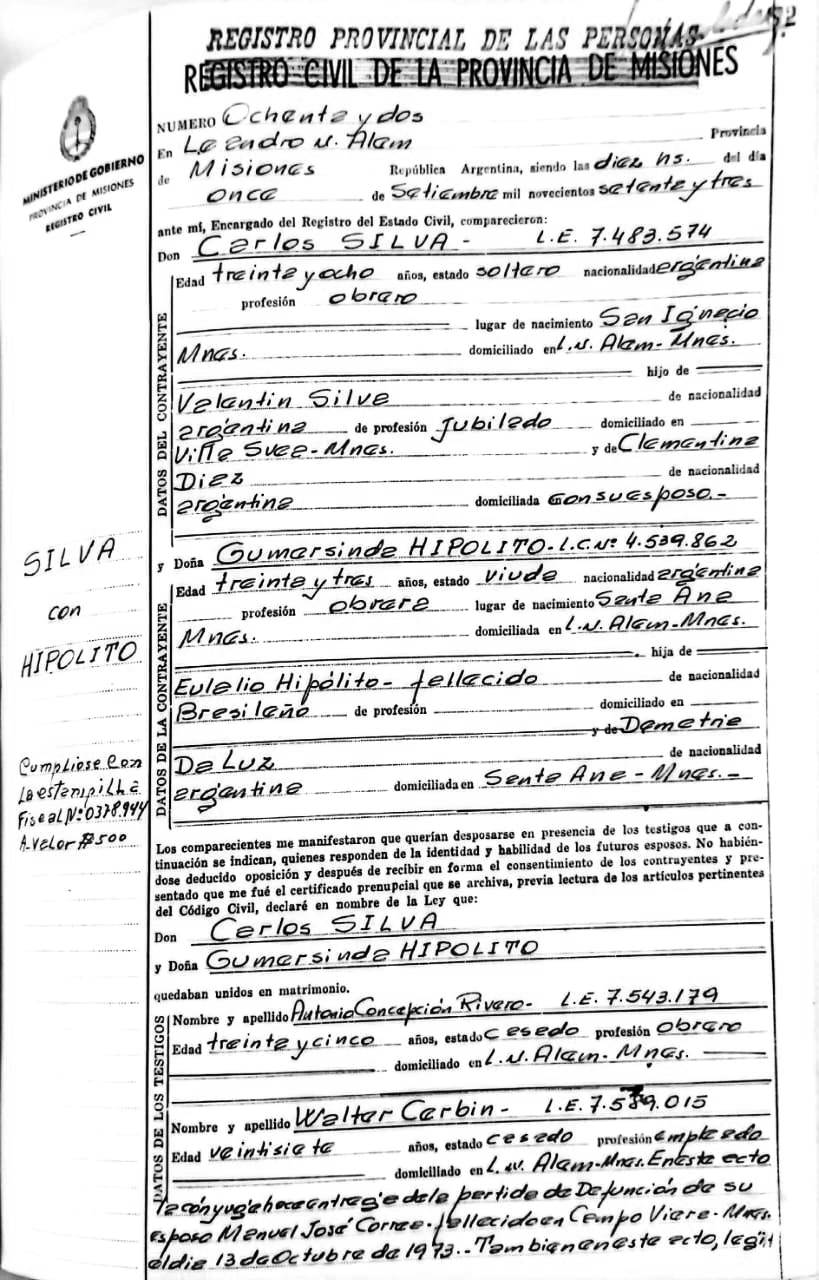 82
REGISTRO PROVINCIAL DE LAS PERSONAS
REGISTRO CIVIL DE LA PROVINCIA DE MISIONES
MINISTERIO DE GOBIERNO
PROVINCIA DE MISIONES
REGISTRO CIVIL
NUMERO Ochenta y dos
En Leandro N. Alem Provincia
de Misiones República Argentina, siendo las diez hs. del día
once de Setiembre mil novecientos setenta y tres
ante mí, Encargado del Registro del Estado Civil, comparecieron:
Don Carlos SILVA - L.E. 7.483.574
DATOS DEL CONTRAYENTE
Edad treinta y ocho años, estado soltero nacionalidad argentina
profesión obrero
lugar de nacimiento San Ignacio
Mnes. domiciliado en L.N. Alem-Mnes.
hijo de
Valentin Silva de nacionalidad
argentina de profesión Jubilado domiciliado en
Villa Svea-Mnes. y de Clementina
Diez de nacionalidad
argentina domiciliada con su esposo.-
y Doña Gumersinda HIPOLITO-L.C.Nº 4.539.862
DATOS DE LA CONTRAYENTE
Edad treinta y tres años, estado viuda nacionalidad argentina
profesión obrera lugar de nacimiento Santa Ana
Mnes. domiciliada en L.N. Alem-Mnes.
hija de
Eulalio Hipólito- fallecido de nacionalidad
Brasileño de profesión domiciliado en
y de Demetria
Da Luz de nacionalidad
argentina domiciliada en Santa Ana-Mnes.-
SILVA
con
HIPOLITO
Cumpliose con
la estampilla
Fiscal Nº 0378.944
A-valor $500
Los comparecientes me manifestaron que querían desposarse en presencia de los testigos que a con-
tinuación se indican, quienes responden de la identidad y habilidad de los futuros esposos. No habién-
dose deducido oposición y después de recibir en forma el consentimiento de los contrayentes y pre-
sentado que me fué el certificado prenupcial que se archiva, previa lectura de los artículos pertinentes
del Código Civil, declaré en nombre de la Ley que:
Don Carlos SILVA
y Doña Gumersinda HIPOLITO
quedaban unidos en matrimonio.
DATOS DE LOS TESTIGOS
Nombre y apellido Antonio Concepción Rivero- L.E. 7.543.179
Edad treinta y cinco años, estado casado profesión obrero
domiciliado en L.N. Alem-Mnes.
Nombre y apellido Walter Carbin- L.E. 7.589.015
Edad veintisiete años, estado casado profesión empleado
domiciliado en L.N. Alem-Mnes. En este acto
la cónyuge hace entrega de la partida de Defunción de su
esposo Manuel José Correa-fallecido en Campo Viera-Mnes.
el dia 13 de Octubre de 1973.-Tambien en este acto, legit